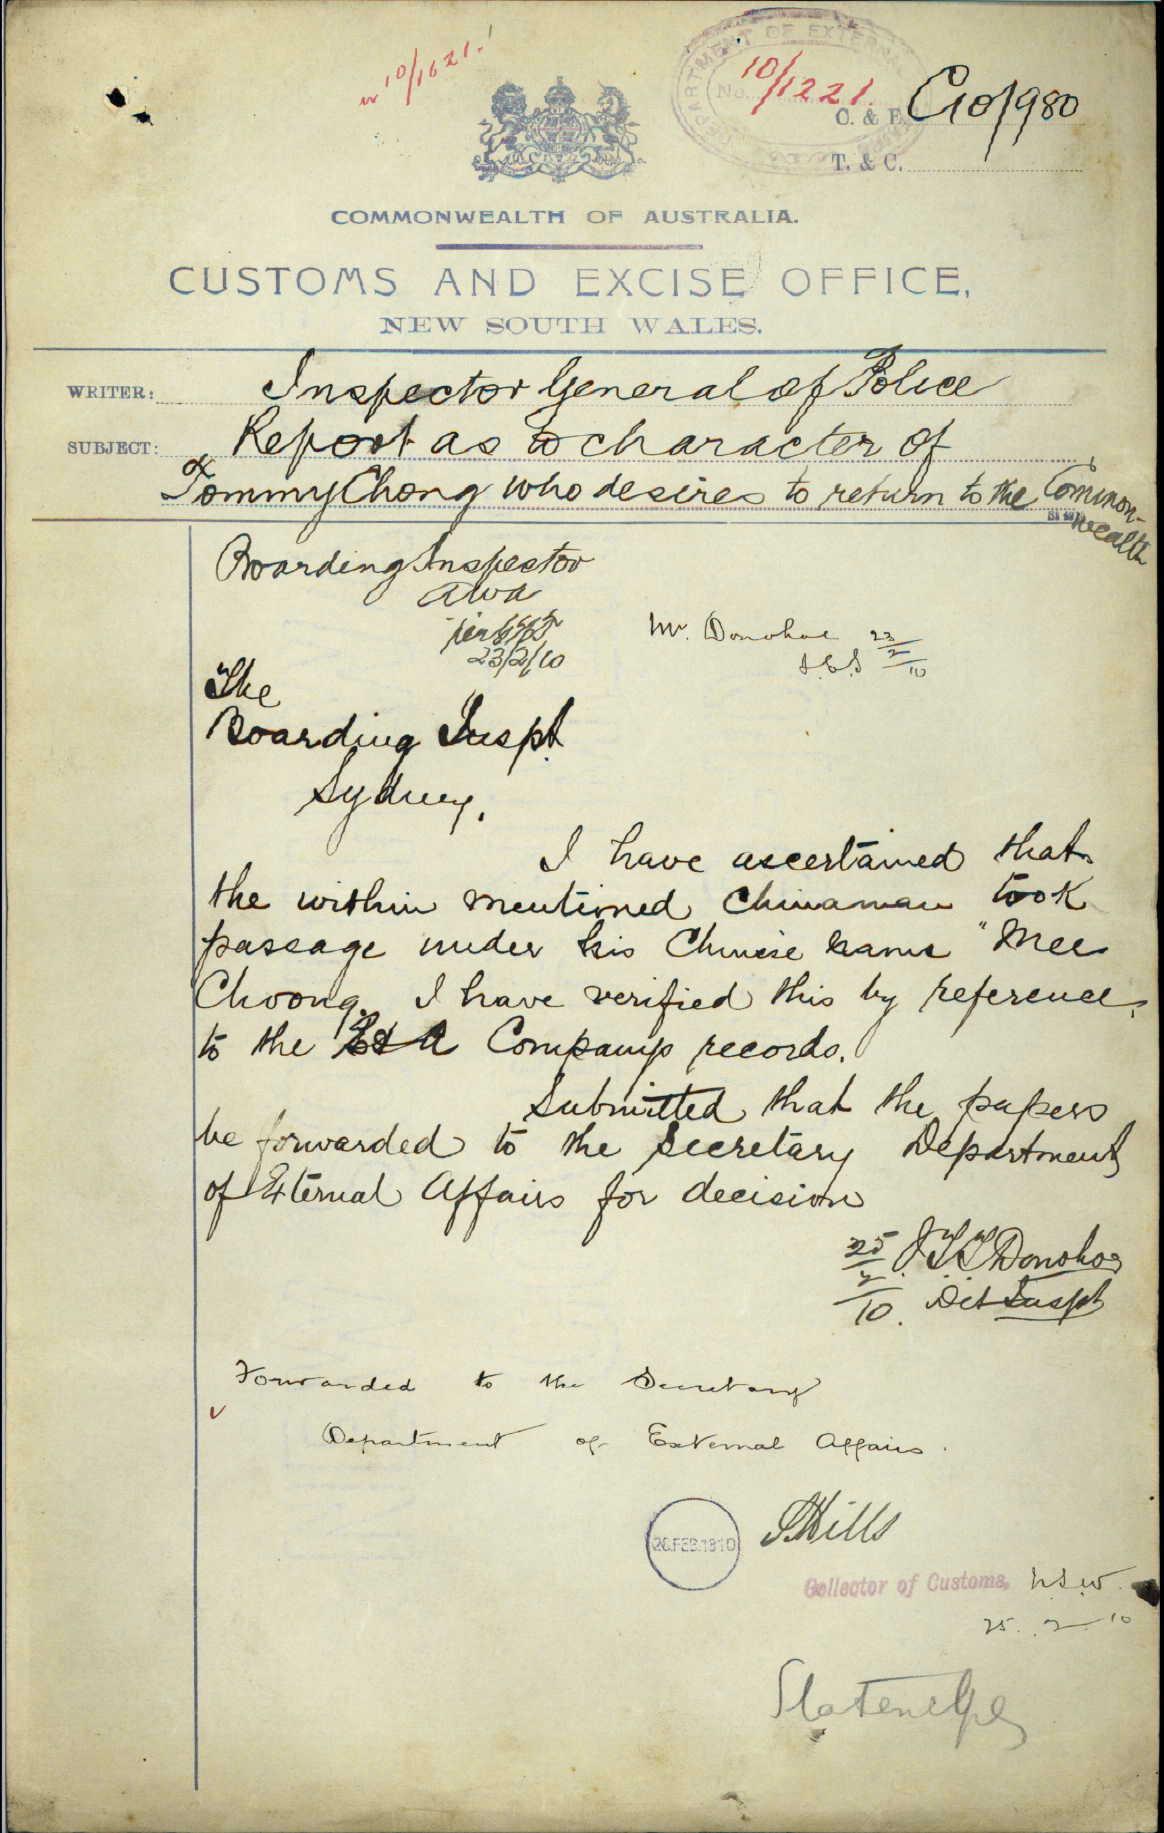 10/1621.
DEPARTMENT OF EXTERNAL
No. 10/1221.
C. & E. C10/980
T. & C.
COMMONWEALTH OF AUSTRALIA.
CUSTOMS AND EXCISE OFFICE,
NEW SOUTH WALES.
WRITER: Inspector General of Police
SUBJECT: Report as to character of
Tommy Chong who desires to return to the Common-
wealth
Boarding Inspector
23/2/10
Mr. Donohoe 23/2/10
The
Boarding Inspt.
Sydney.
I have ascertained that
the within mentioned Chinaman took
passage under his Chinese name "Mee
Choong. I have verified this by reference
to the E & A Companys records.
Submitted that the papers
be forwarded to the Secretary Department
of External Affairs for decision
25/2/10. J.T.T. Donohoe
Det Inspt
Forwarded to the Secretary
Department of External Affairs.
26.FEB.1910
S Mills
Collector of Customs, N.S.W.
25.2.10